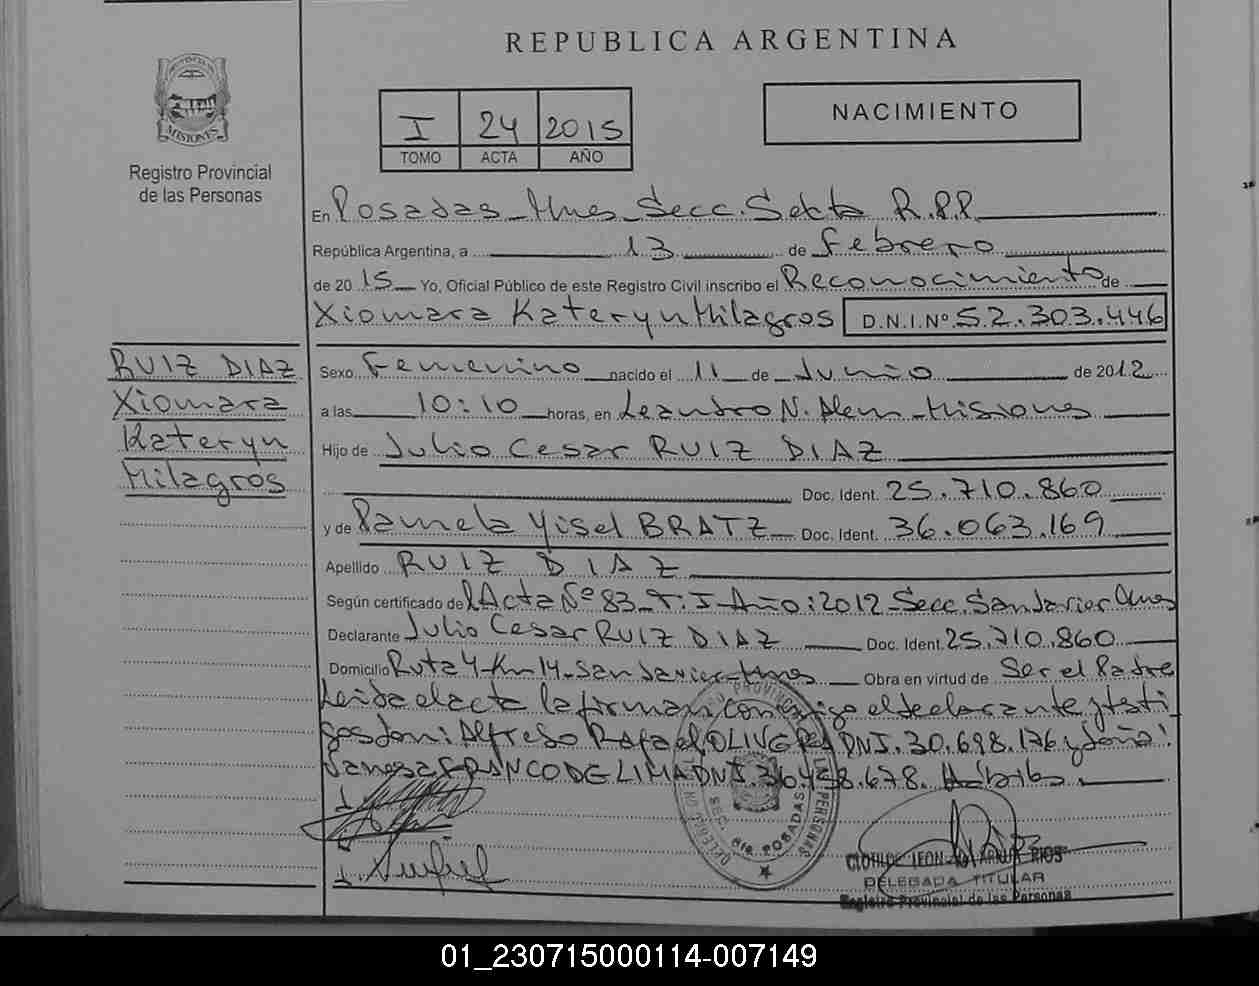 REPUBLICA ARGENTINA
MISIONES
Registro Provincial
de las Personas
I 24 2015
TOMO ACTA AÑO
NACIMIENTO
En Posadas_Mnes_Secc. Sexta R.P.P.
República Argentina, a 13 de Febrero
de 2015 Yo, Oficial Público de este Registro Civil inscribo el Reconocimiento de
Xiomara Kateryn Milagros D.N.I.Nº 52.303.446
RUIZ DIAZ
Xiomara
Kateryn
Milagros
Sexo Femenino nacido el 11 de Junio de 2012
a las 10:10 horas, en Leandro N. Alem_Misiones
Hijo de Julio Cesar RUIZ DIAZ
Doc. Ident. 25.710.860
y de Pamela Yisel BRATZ Doc. Ident. 36.063.169
Apellido RUIZ DIAZ
Según certificado del Acta Nº 83_T. I_Año: 2012_Secc. San Javier Mnes
Declarante Julio Cesar RUIZ DIAZ Doc. Ident. 25.710.860
Domicilio Ruta 4-Km 14_San Javier_Mnes Obra en virtud de Ser el Padre
Leida el acta la firman conmigo el declarante y testi
gos don: Alfredo Rafael OLIVERA DNI. 30.698.176 y doña:
Vanesa FRANCO DE LIMA DNI. 36.458.678.
CLOTILDE LEON RIOS
DELEGADA TITULAR
Registro Provincial de las Personas
01_230715000114-007149